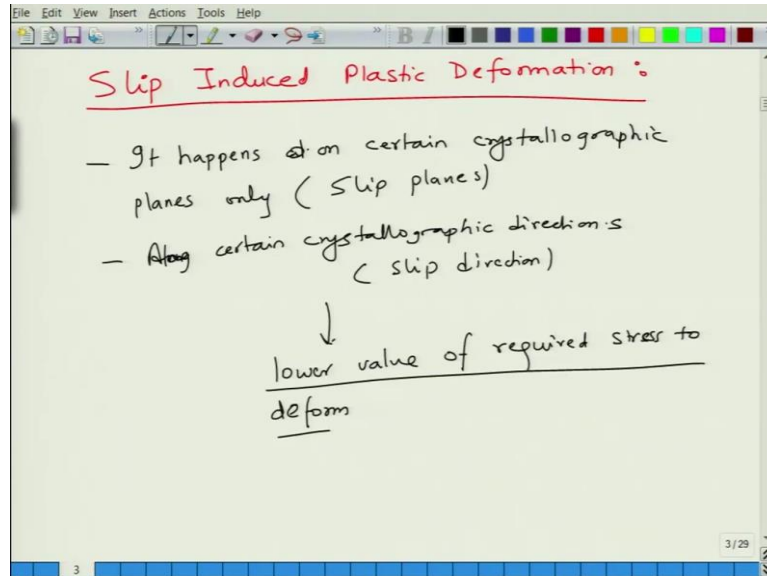 File Edit View Insert Actions Tools Help
Slip Induced Plastic Deformation :
— It happens on certain crystallographic
planes only ( Slip planes)
— Along certain crystallographic directions
( slip direction)
lower value of required stress to
deform
3/29
3